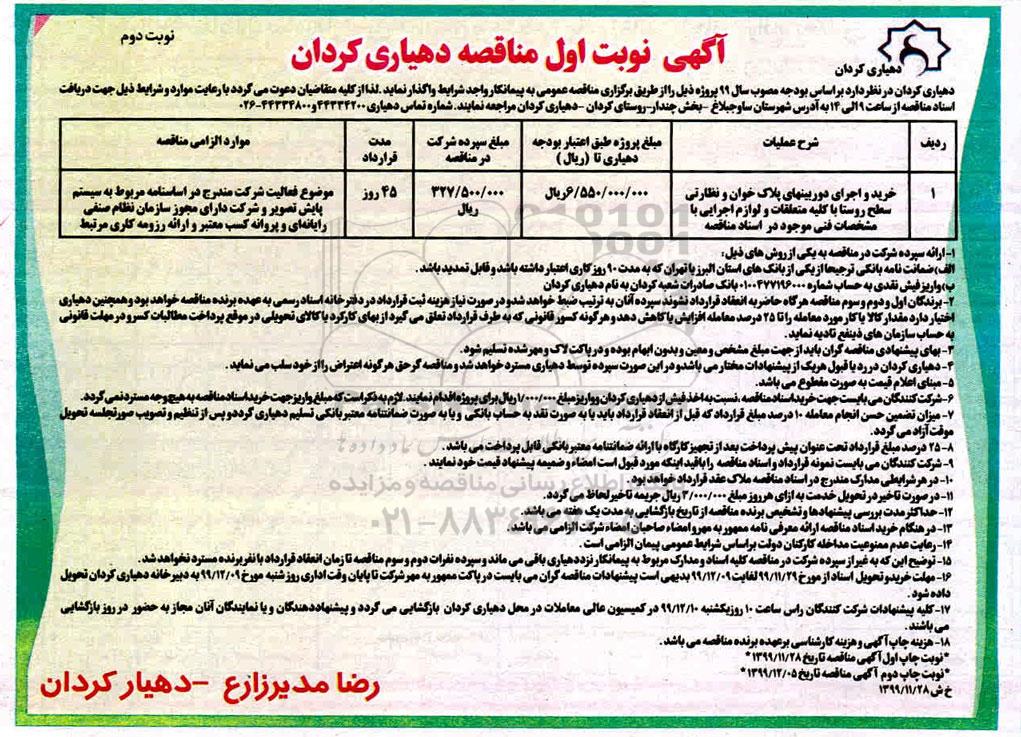 نوبت دوم
آگهی نوبت اول مناقصه دهیاری کردان
دهیاری کردان
دهیاری کردان در نظر دارد بر اساس بودجه مصوب سال ۹۹ پروژه ذیل را از طریق برگزاری مناقصه عمومی به پیمانکار واجد شرایط واگذار نماید .لذا از کلیه متقاضیان دعوت می گردد با رعایت موارد و شرایط ذیل جهت دریافت
اسناد مناقصه از ساعت ۹ الی ۱۴ به آدرس شهرستان ساوجبلاغ -بخش چندار-روستای کردان -دهیاری کردان مراجعه نمایند. شماره تماس دهیاری ۴۴۳۳۴۲۰۰و۴۴۳۳۴۸۰۰-۰۲۶
ردیف
شرح عملیات
مبلغ پروژه طبق اعتبار بودجه
دهیاری تا (ریال)
مبلغ سپرده شرکت
در مناقصه
مدت
قرارداد
موارد الزامی مناقصه
۱
خرید و اجرای دوربینهای پلاک خوان و نظارتی
سطح روستا با کلیه متعلقات و لوازم اجرایی با
مشخصات فنی موجود در اسناد مناقصه
۶/۵۵۰/۰۰۰/۰۰۰ریال
۳۲۷/۵۰۰/۰۰۰
ریال
۴۵ روز
موضوع فعالیت شرکت مندرج در اساسنامه مربوط به سیستم
پایش تصویر و شرکت دارای مجوز سازمان نظام صنفی
رایانه‌ای و پروانه کسب معتبر و ارائه رزومه کاری مرتبط
۱-ارائه سپرده شرکت در مناقصه به یکی از روش های ذیل:
الف)ضمانت نامه بانکی ترجیحا از یکی از بانک های استان البرز یا تهران که به مدت ۹۰ روز کاری اعتبار داشته باشد و قابل تمدید باشد.
ب)واریز فیش نقدی به حساب شماره ۰۱۰۰۴۷۷۱۹۶۰۰۰ بانک صادرات شعبه کردان به نام دهیاری کردان
۲- برندگان اول و دوم و سوم مناقصه هر گاه حاضر به انعقاد قرارداد نشوند سپرده آنان به ترتیب ضبط خواهد شد و در صورت نیاز هزینه ثبت قرارداد در دفترخانه اسناد رسمی به عهده برنده مناقصه خواهد بود و همچنین دهیاری
اختیار دارد مقدار کالا یا کار مورد معامله را تا ۲۵ درصد معامله افزایش یا کاهش دهد و هرگونه کسور قانونی که به طرف قرارداد تعلق می گیرد از بهای کارکرد یا کالای تحویلی در موقع پرداخت مطالبات کسر و در مهلت قانونی
به حساب سازمان های ذینفع تادیه نماید.
۳- بهای پیشنهادی مناقصه گران باید از جهت مبلغ مشخص و معین و بدون ابهام بوده و در پاکت لاک و مهر شده تسلیم شود.
۴- دهیاری کردان در رد یا قبول هریک از پیشنهادات مختار می باشد و در این صورت سپرده توسط دهیاری مسترد خواهد شد و مناقصه گر حق هر گونه اعتراض را از خود سلب می نماید.
۵- مبنای اعلام قیمت به صورت مقطوع می باشد.
۶-شرکت کنندگان می بایست جهت خرید اسناد مناقصه ،نسبت به اخذ فیش از دهیاری کردان و واریز مبلغ ۱/۰۰۰/۰۰۰ ریال برای پروژه اقدام نمایند. لازم به ذکر است که مبلغ واریز جهت خرید اسناد مناقصه به هیچ وجه مسترد نمی گردد.
۷- میزان تضمین حسن انجام معامله ۱۰ درصد مبلغ قرارداد که قبل از انعقاد قرارداد باید یا به صورت نقد به حساب بانکی و یا به صورت ضمانتنامه معتبر بانکی تسلیم دهیاری گردد و پس از تنظیم و تصویب صورتجلسه تحویل
موقت آزاد می گردد.
۸- ۲۵ درصد مبلغ قرارداد تحت عنوان پیش پرداخت بعد از تجهیز کارگاه با ارائه ضمانتنامه معتبر بانکی قابل پرداخت می باشد.
۹-شرکت کنندگان می بایست نمونه قرارداد و اسناد مناقصه را باقید اینکه مورد قبول است امضاء و ضمیمه پیشنهاد قیمت خود نمایند.
۱۰- در هر شرایطی مدارک مندرج در اسناد مناقصه ملاک عقد قرارداد خواهد بود.
۱۱-در صورت تاخیر در تحویل خدمت به ازای هر روز مبلغ ۳/۰۰۰/۰۰۰ ریال جریمه تاخیر لحاظ می گردد.
۱۲- حداکثر مدت بررسی پیشنهادها و تشخیص برنده مناقصه از تاریخ بازگشایی به مدت یک هفته می باشد.
۱۳- در هنگام خرید اسناد مناقصه ارائه معرفی نامه ممهور به مهر و امضاء صاحبان امضاء شرکت الزامی می باشد.
۱۴- رعایت عدم ممنوعیت مداخله کارکنان دولت بر اساس شرایط عمومی پیمان الزامی است.
۱۵- توضیح این که به غیر از سپرده شرکت در مناقصه کلیه اسناد و مدارک مربوط به پیمانکار نزد دهیاری باقی می ماند و سپرده نفرات دوم و سوم مناقصه تا زمان انعقاد قرارداد با نفر برنده مسترد نخواهد شد.
۱۶- مهلت خرید و تحویل اسناد از مورخ ۹۹/۱۱/۲۹ لغایت ۹۹/۱۲/۰۹ بدیهی است پیشنهادات مناقصه گران می بایست در پاکت ممهور به مهر شرکت تا پایان وقت اداری روز شنبه مورخ ۹۹/۱۲/۰۹ به دبیرخانه دهیاری کردان تحویل
داده شود.
۱۷- کلیه پیشنهادات شرکت کنندگان راس ساعت ۱۰ روز یکشنبه ۹۹/۱۲/۱۰ در کمیسیون عالی معاملات در محل دهیاری کردان بازگشایی می گردد و پیشنهاددهندگان و یا نمایندگان آنان مجاز به حضور در روز بازگشایی
می باشند.
۱۸- هزینه چاپ آگهی و هزینه کارشناسی برعهده برنده مناقصه می باشد.
*نوبت چاپ اول آگهی مناقصه تاریخ ۱۳۹۹/۱۱/۲۸*
*نوبت چاپ دوم آگهی مناقصه تاریخ ۱۳۹۹/۱۲/۰۵*
خ ش ۱۳۹۹/۱۱/۲۸
رضا مدیرزارع -دهیار کردان